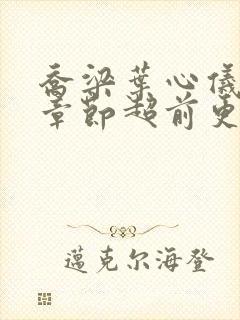 乔梁葉心儀
章節超前更
邁克尔海登